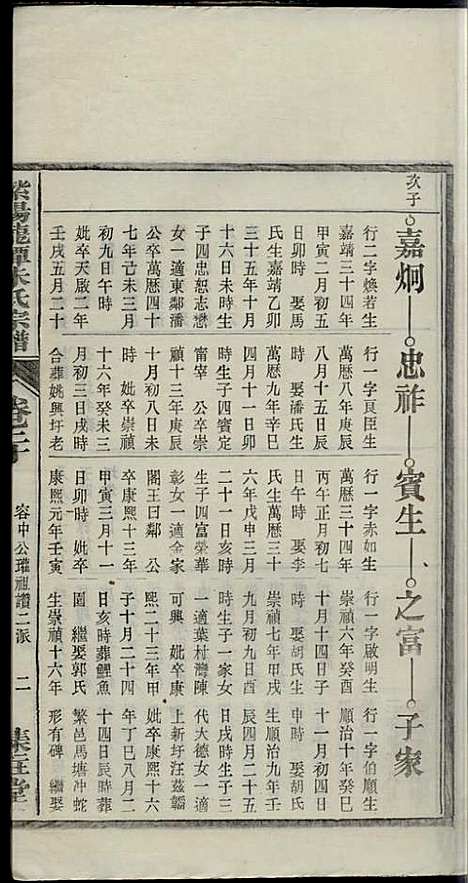 次子
嘉炯
忠祚
賓生
之富
子家
行二字煥若生
嘉靖三十四年
甲寅二月初五
日卯時 娶馬
氏生嘉靖乙卯
三十五年十月
十六日未時生
子四忠恕志懋
女一適東鄰潘
公卒萬曆四十
七年亡未三月
初九日午時
妣卒天啟二年
壬戌五月二十
行一字良臣生
萬曆八年庚辰
八月十五日辰
時 娶潘氏生
萬曆九年辛巳
四月十一日卯
時生子四賓定
甯宰 公卒崇
禎十三年庚辰
十月初八日未
時 妣卒崇禎
十六年癸未三
月初三日戌時
合葬姚興圩老
行一字赤如生
萬曆三十四年
丙午正月初七
日午時 娶李
氏生萬曆三十
六年戊申三月
二十一日亥時
生子四富榮華
彰女一適金家
閣王曰鄰 公
卒康熙十三年
甲寅三月十一
日卯時 妣卒
康熙元年壬寅
行一字啟明生
崇禎六年癸酉
時 娶胡氏生
崇禎七年甲戌
九月初九日酉
時生子一家女
一適葉村灣陳
可興 妣卒康
熙二十三年甲
子十月二十四
日亥時葬鯉魚
園 繼娶郭氏
生崇禎十六年
行一字伯順生
順治十年癸巳
時 娶胡氏
生順治九年壬
辰四月二十五
日戌時生子三
代大德女一適
上新圩汪茲韜
妣卒康熙十六
年丁巳八月二
十四日寅時葬
繁邑馬塘冲蛇
形有碑 繼娶
紫陽龍潭朱氏宗譜 卷二十 容中公璀祖讚二派 二